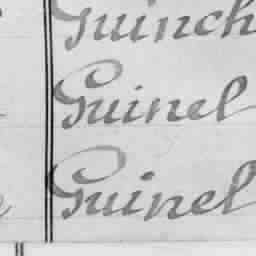 Guinch
Guinel
Guinel